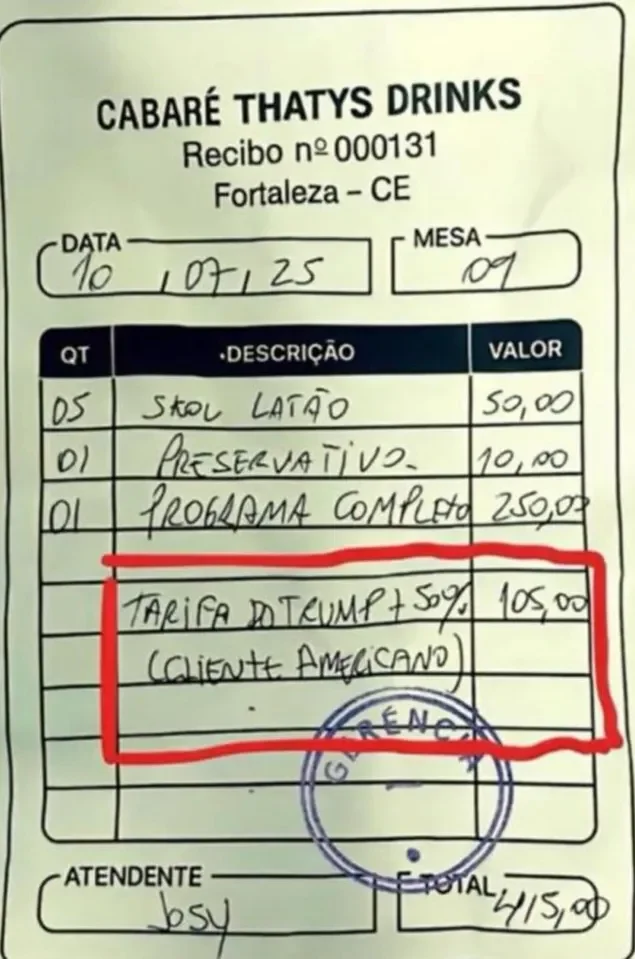 CABARÉ THATYS DRINKS
Recibo nº 000131
Fortaleza – CE
DATA
10 , 07 , 25
MESA
09
QT ·DESCRIÇÃO VALOR
05 SKOL LATÃO 50,00
01 PRESERVATIVO. 10,00
01 PROGRAMA COMPLETO 250,00
TARIFA DO TRUMP + 50% 105,00
(CLIENTE AMERICANO)
GERÊNCIA
ATENDENTE
Josy
TOTAL
415,00